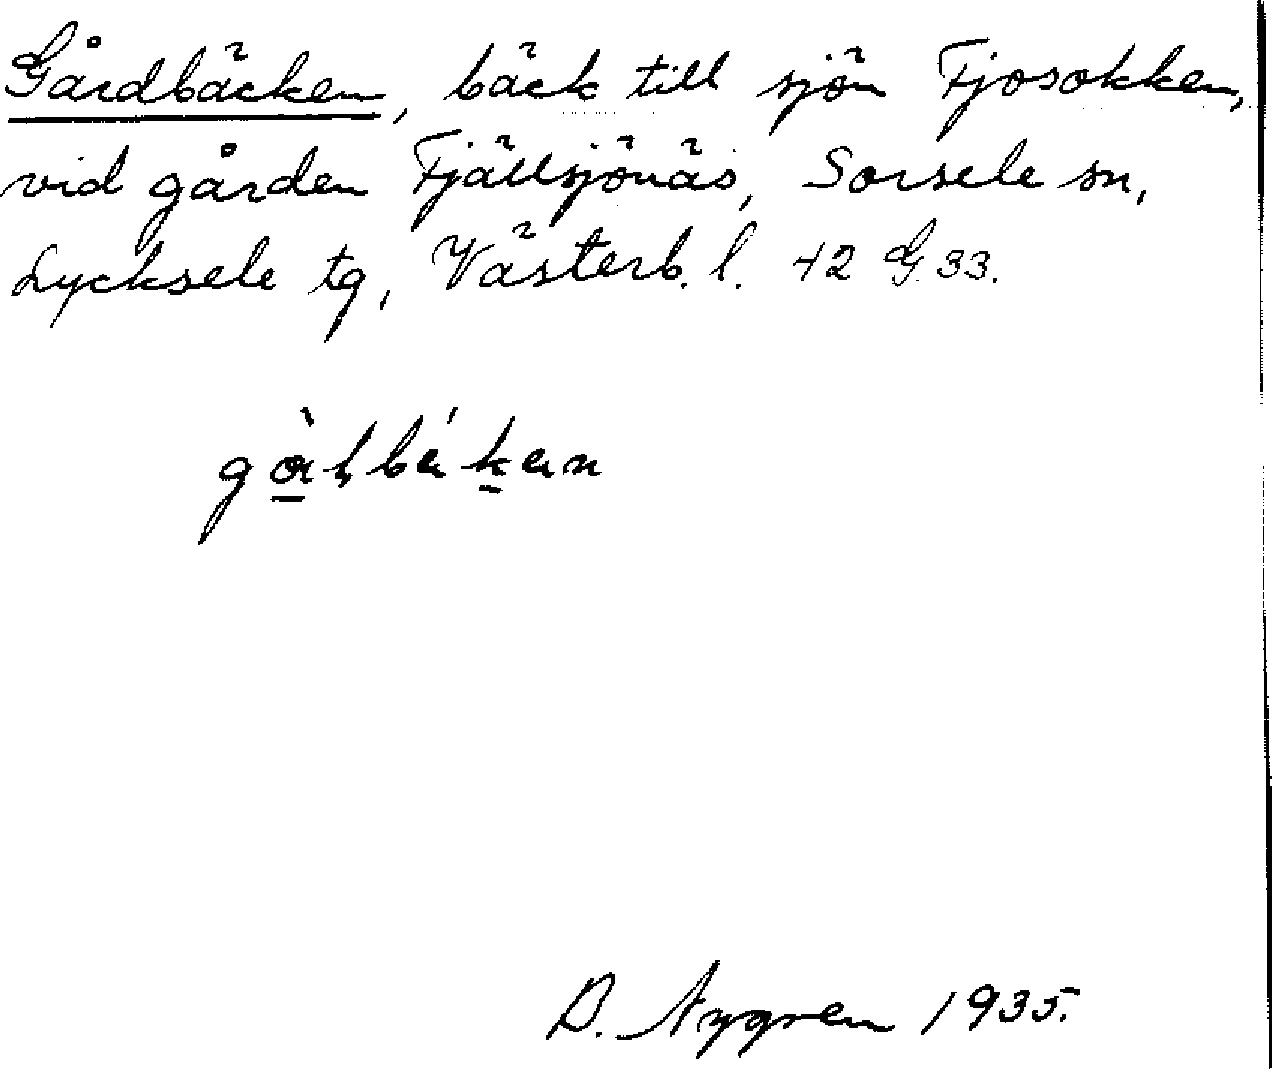 Gårdbäcken, bäck till sjön Fjosokken,
vid gården Fjällsjönäs, Sorsele sn,
Lycksele tg, Västerb. l. 42 G 33.
D. Nygren 1935.